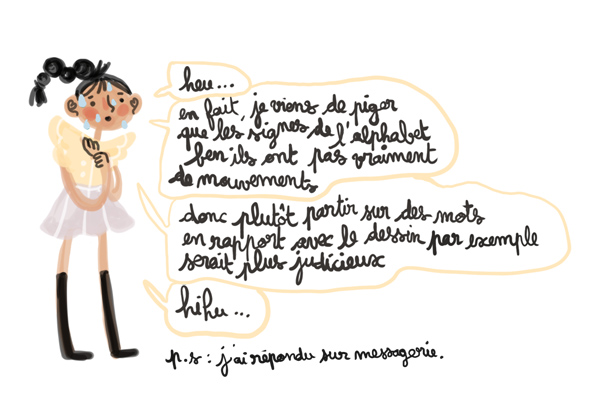 heu...
en fait, je viens de piger
que les signes de l'alphabet
ben ils ont pas vraiment
de mouvements
donc plutôt partir sur des mots
en rapport avec le dessin par exemple
serait plus judicieux
hihu...
p.s : j'ai répondu sur messagerie.